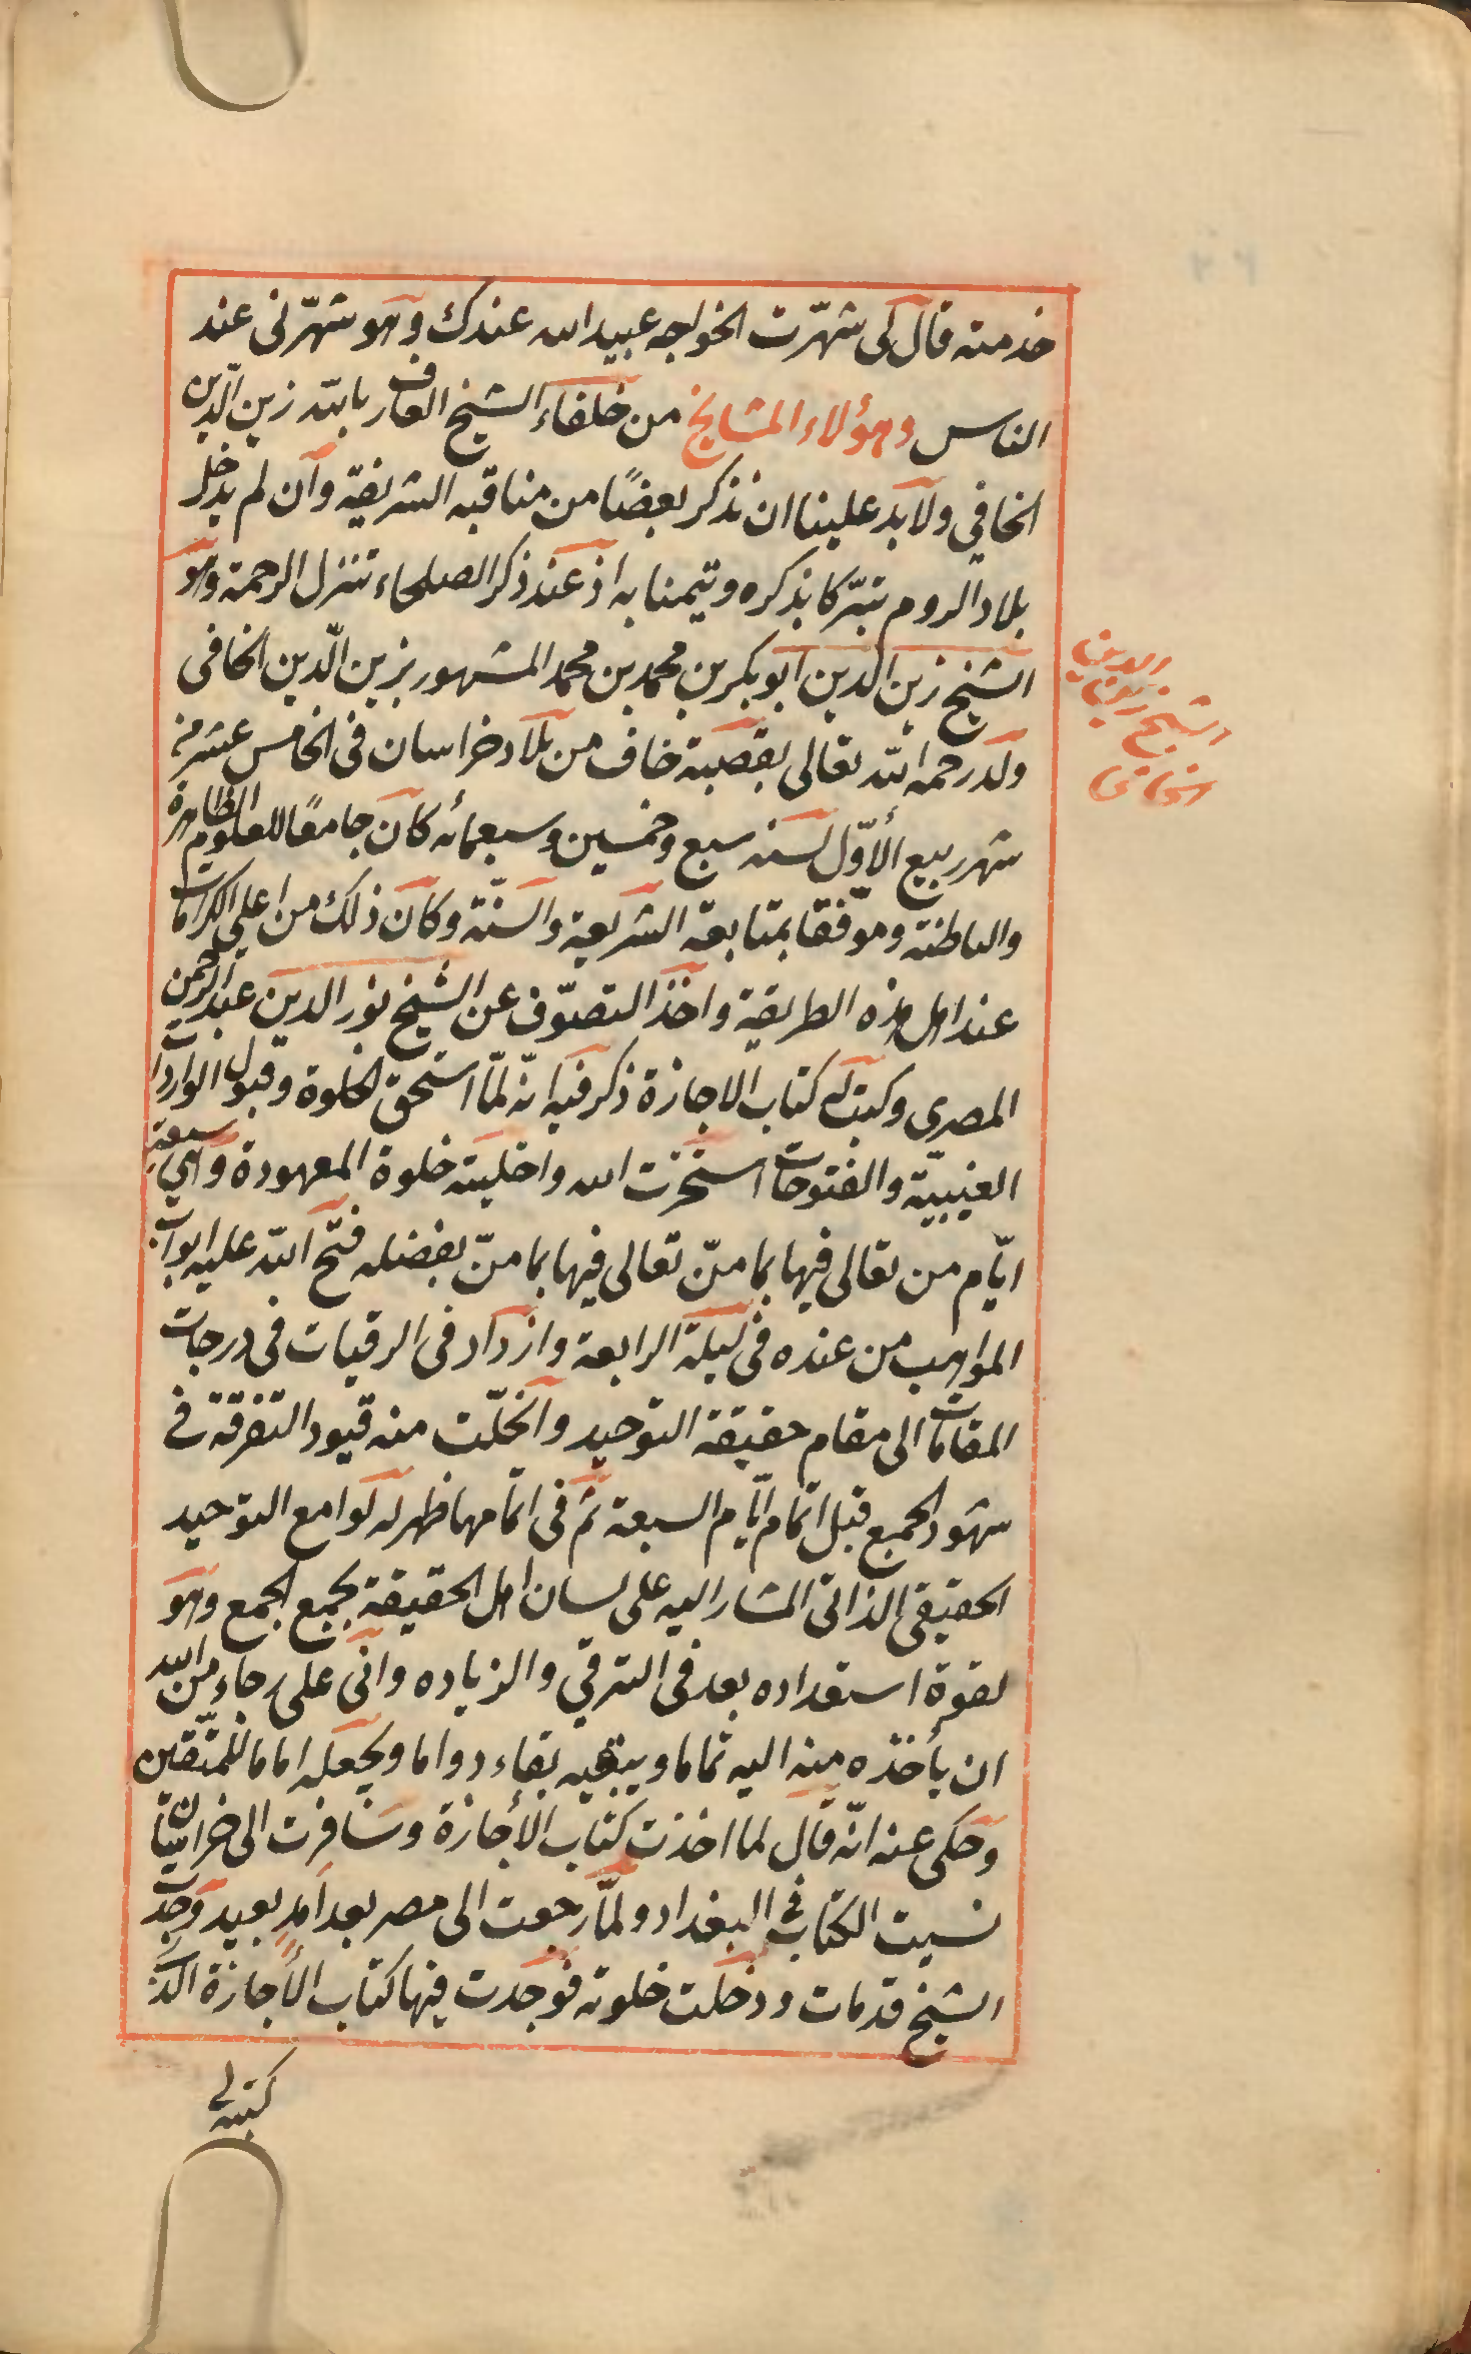 خدمته قال لى شهّرت الخواجه عبيد الله عندك وهو شهّرنى عند
الناس وهؤلاء المشايخ من خلفاء الشيخ العارف بالله زين الدين
الخافي ولا بد علينا ان نذكر بعضًا من مناقبه الشريفة وان لم يدخل
بلاد الروم تبرّكا بذكره وتيمنا به اذ عند ذكر الصلحاء تنزل الرحمة وهو
الشيخ زين الدين ابو بكر بن محمد بن محمد المشهور بزين الدّين الخافى
الشيخ زين الدين
الخافى
ولد رحمه الله تعالى بقصبة خاف من بلاد خراسان فى الخامس عشر من
شهر ربيع الأوّل لسنه سبع وخمسين وسبعمائه كان جامعًا للعلوم الظاهرة
والباطنة وموفّقا بمتابعة الشريعة والسنّة وكان ذلك من اعلى الكرامات
عند اهل هذه الطريقة واخذ التصوّف عن الشيخ نور الدين عبد الرحمن
المصرى وكتب له كتاب الاجازة ذكر فيه انّه لمّا استحق الخلوة وقبول الواردات
الغيبيّة والفتوحات استخرت الله واخليته خلوة المعهودة وهى سبعة
ايّام من تعالى فيها بما منّ تعالى فيها بما منّ بفضله فتح الله عليه ابواب
المواهب من عنده فى ليلة الرابعة وازداد فى الرقيات فى درجات
المقامات الى مقام حقيقة التوحيد وانحلّت منه قيود التفرقة فى
شهود الجمع قبل اتمام ايّام السبعة ثم فى اتمامها ظهر له لوامع التوحيد
الحقيقى الذاتى المشار اليه على لسان اهل الحقيقة بجمع الجمع وهو
لقوة استعداده بعد فى الترقي والزياده وانى على رجاء من الله
ان يأخذه منه اليه تماما ويبقيه بقاء دواما ويجعله اماما للمتّقين
وحكى عنه انّه قال لما اخذت كتاب الأجازة وسافرت الى خراسان
نسيت الكتاب فى البغداد ولمّا رجعت الى مصر بعد امدٍ بعيد وجدت
الشيخ قد مات ودخلت خلوته فوجدت فيها كتاب الأجازة الذى
كتبه لى